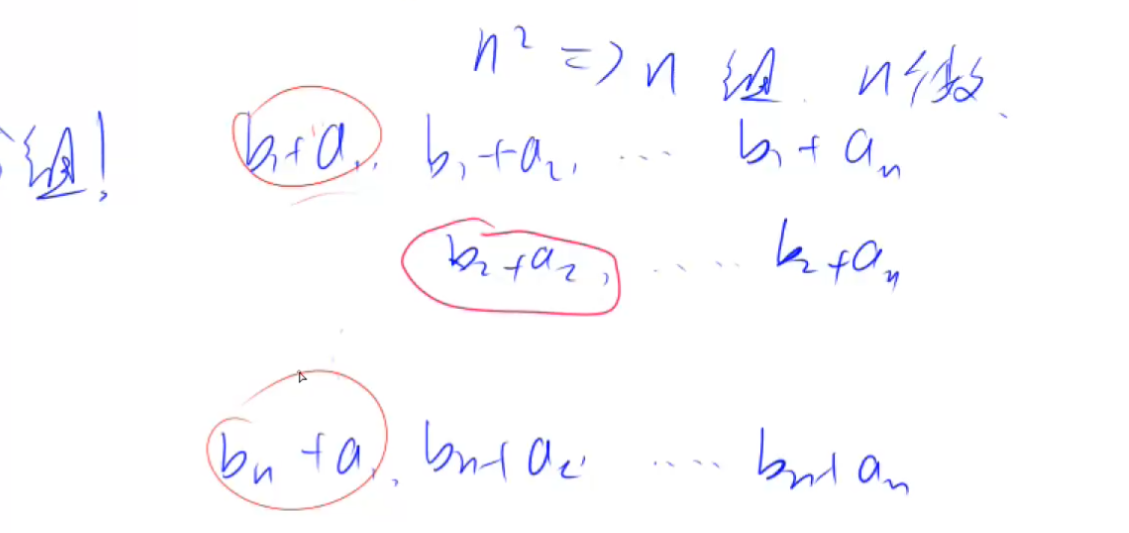 n² => n 组 n个数
组! b₁+a₁, b₁+a₂, ... b₁+aₙ
b₂+a₂, ..... b₂+aₙ
bₙ+a₁, bₙ+a₂ .... bₙ+aₙ